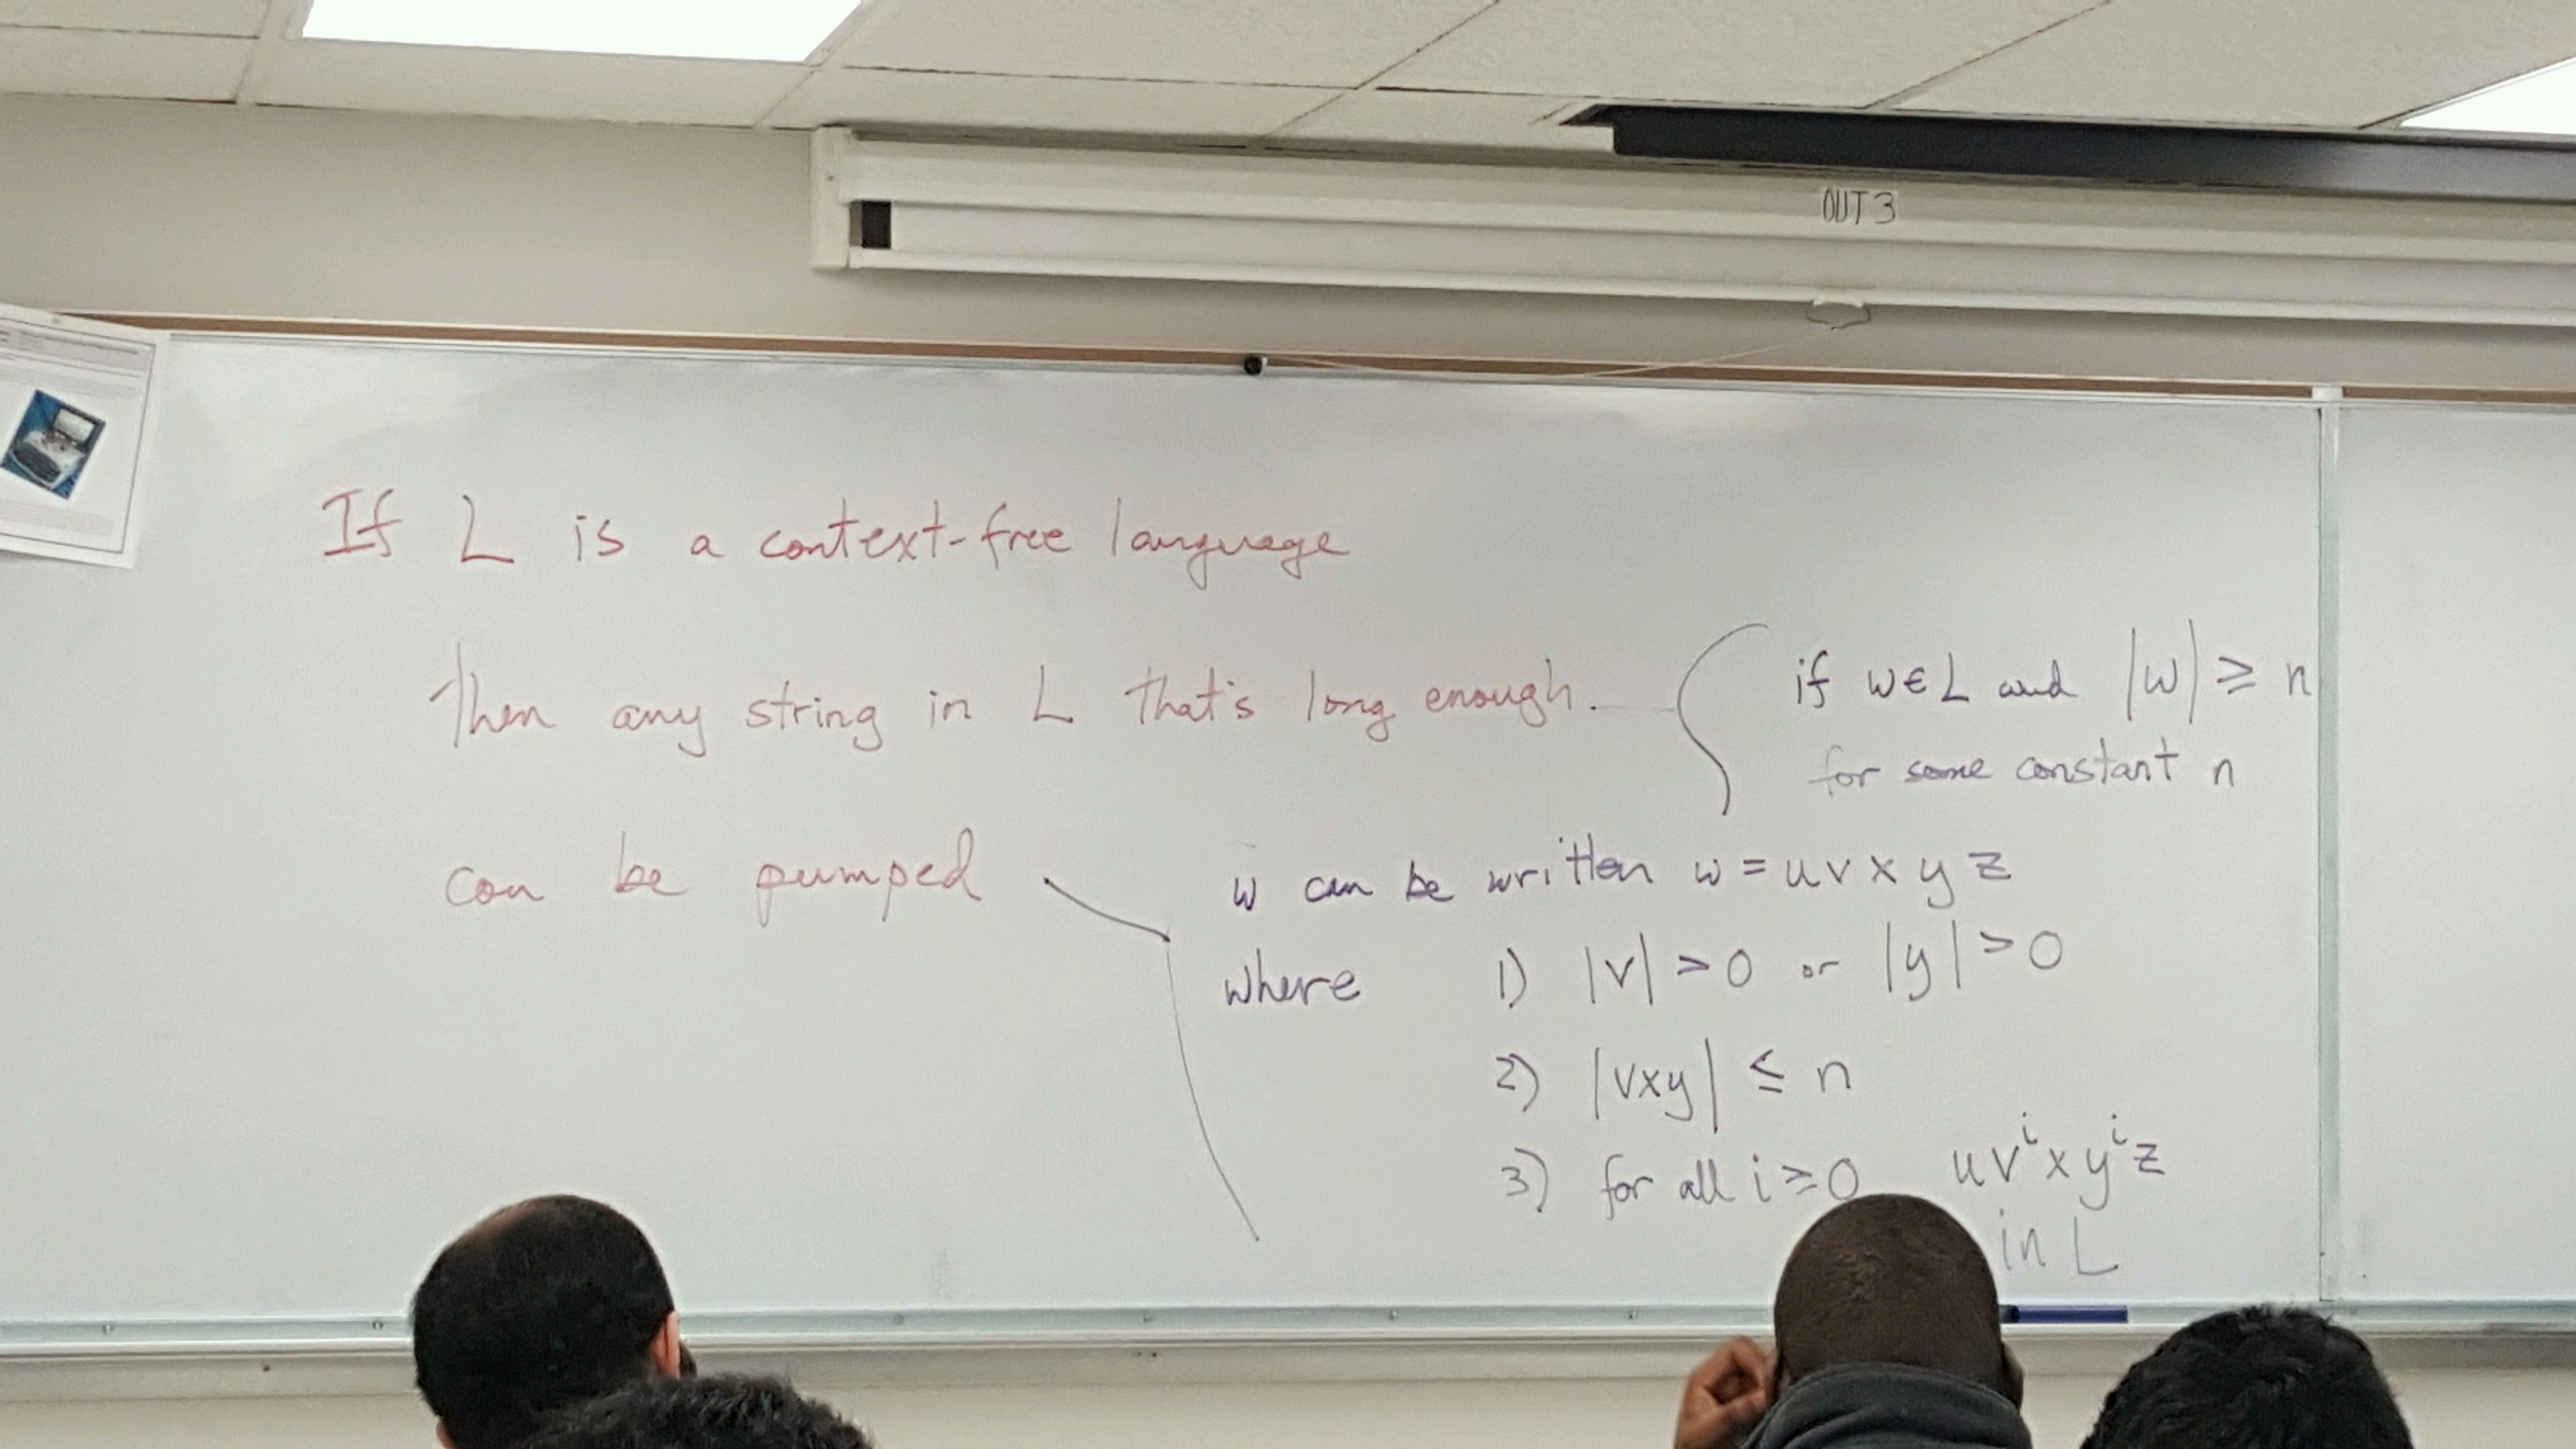 OUT 3
If L is a context-free language
Then any string in L that's long enough.
if w∈L and |w| ≥ n
for some constant n
can be pumped
w can be written w = u v x y z
where 1) |v| > 0 or |y| > 0
2) |vxy| ≤ n
3) for all i ≥ 0 u vⁱ x yⁱ z
in L